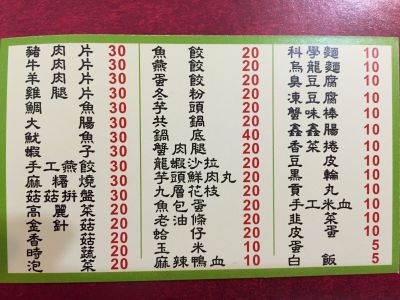 豬肉片 30
牛肉片 30
羊肉片 30
雞腿片 30
鯛魚 30
大腸 30
魷魚 30
蝦子 30
手工燕餃 30
麻糬燒 30
菇菇拼盤 30
高麗菜 20
金針菇 20
香菇 20
時蔬 20
泡菜 20
魚餃 20
燕餃 20
蛋餃 20
冬粉 20
芋頭 20
共鍋 20
鍋底 40
蟹腿肉 20
龍蝦沙拉 20
芋頭鮮肉丸 20
九層花枝 20
魚包蛋 20
老油條 20
蛤仔 20
玉米 10
麻辣鴨血 10
科學麵 10
烏龍麵 10
臭豆腐 10
凍豆腐 10
蟹味棒 10
鑫鑫腸 10
香菜捲 10
豆皮 10
黑輪 10
貢丸 10
手工米血 10
韭菜 10
皮蛋 5
白飯 5